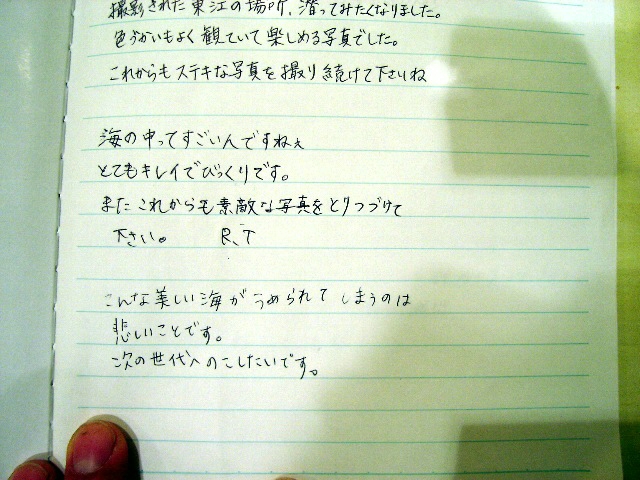 撮影された東江の場所、潜ってみたくなりました。
色づかいもよく観ていて楽しめる写真でした。
これからもステキな写真を撮り続けて下さいね
海の中ってすごいんですねぇ
とてもキレイでびっくりです。
またこれからも素敵な写真をとりつづけて
下さい。 R、T
こんな美しい海がうめられてしまうのは
悲しいことです。
次の世代へのこしたいです。